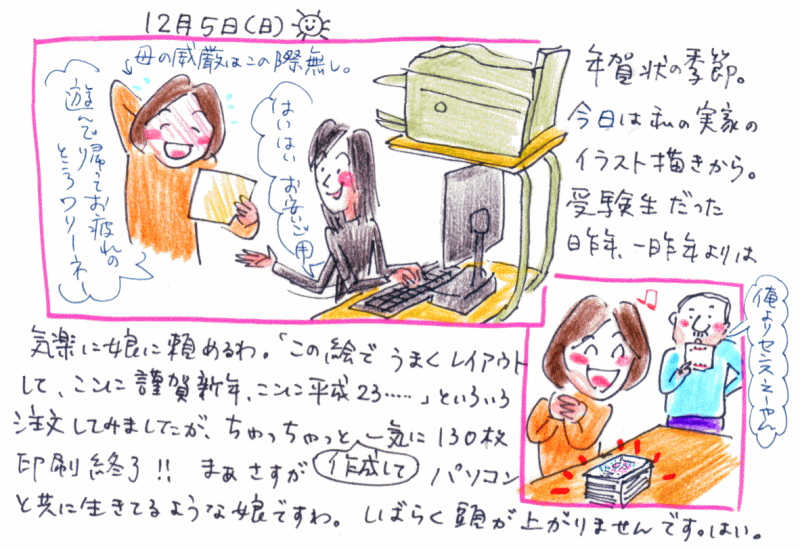 12月5日(日)
母の威厳はこの際無し。
遊んで帰ってお疲れの
ところワリーネー
はいはい お安いご用
年賀状の季節。
今日は私の実家の
イラスト描きから。
受験生だった
昨年、一昨年よりは
俺よりセンスえーやん
気楽に娘に頼めるわ。「この絵で うまくレイアウト
して、ここに謹賀新年、ここに平成23……」といろいろ
注文してみましたが、ちゃっちゃっと作成して一気に130枚
印刷終了!! まぁさすが パソコン
と共に生きてるような娘ですわ。しばらく頭が上がりませんです。はい。